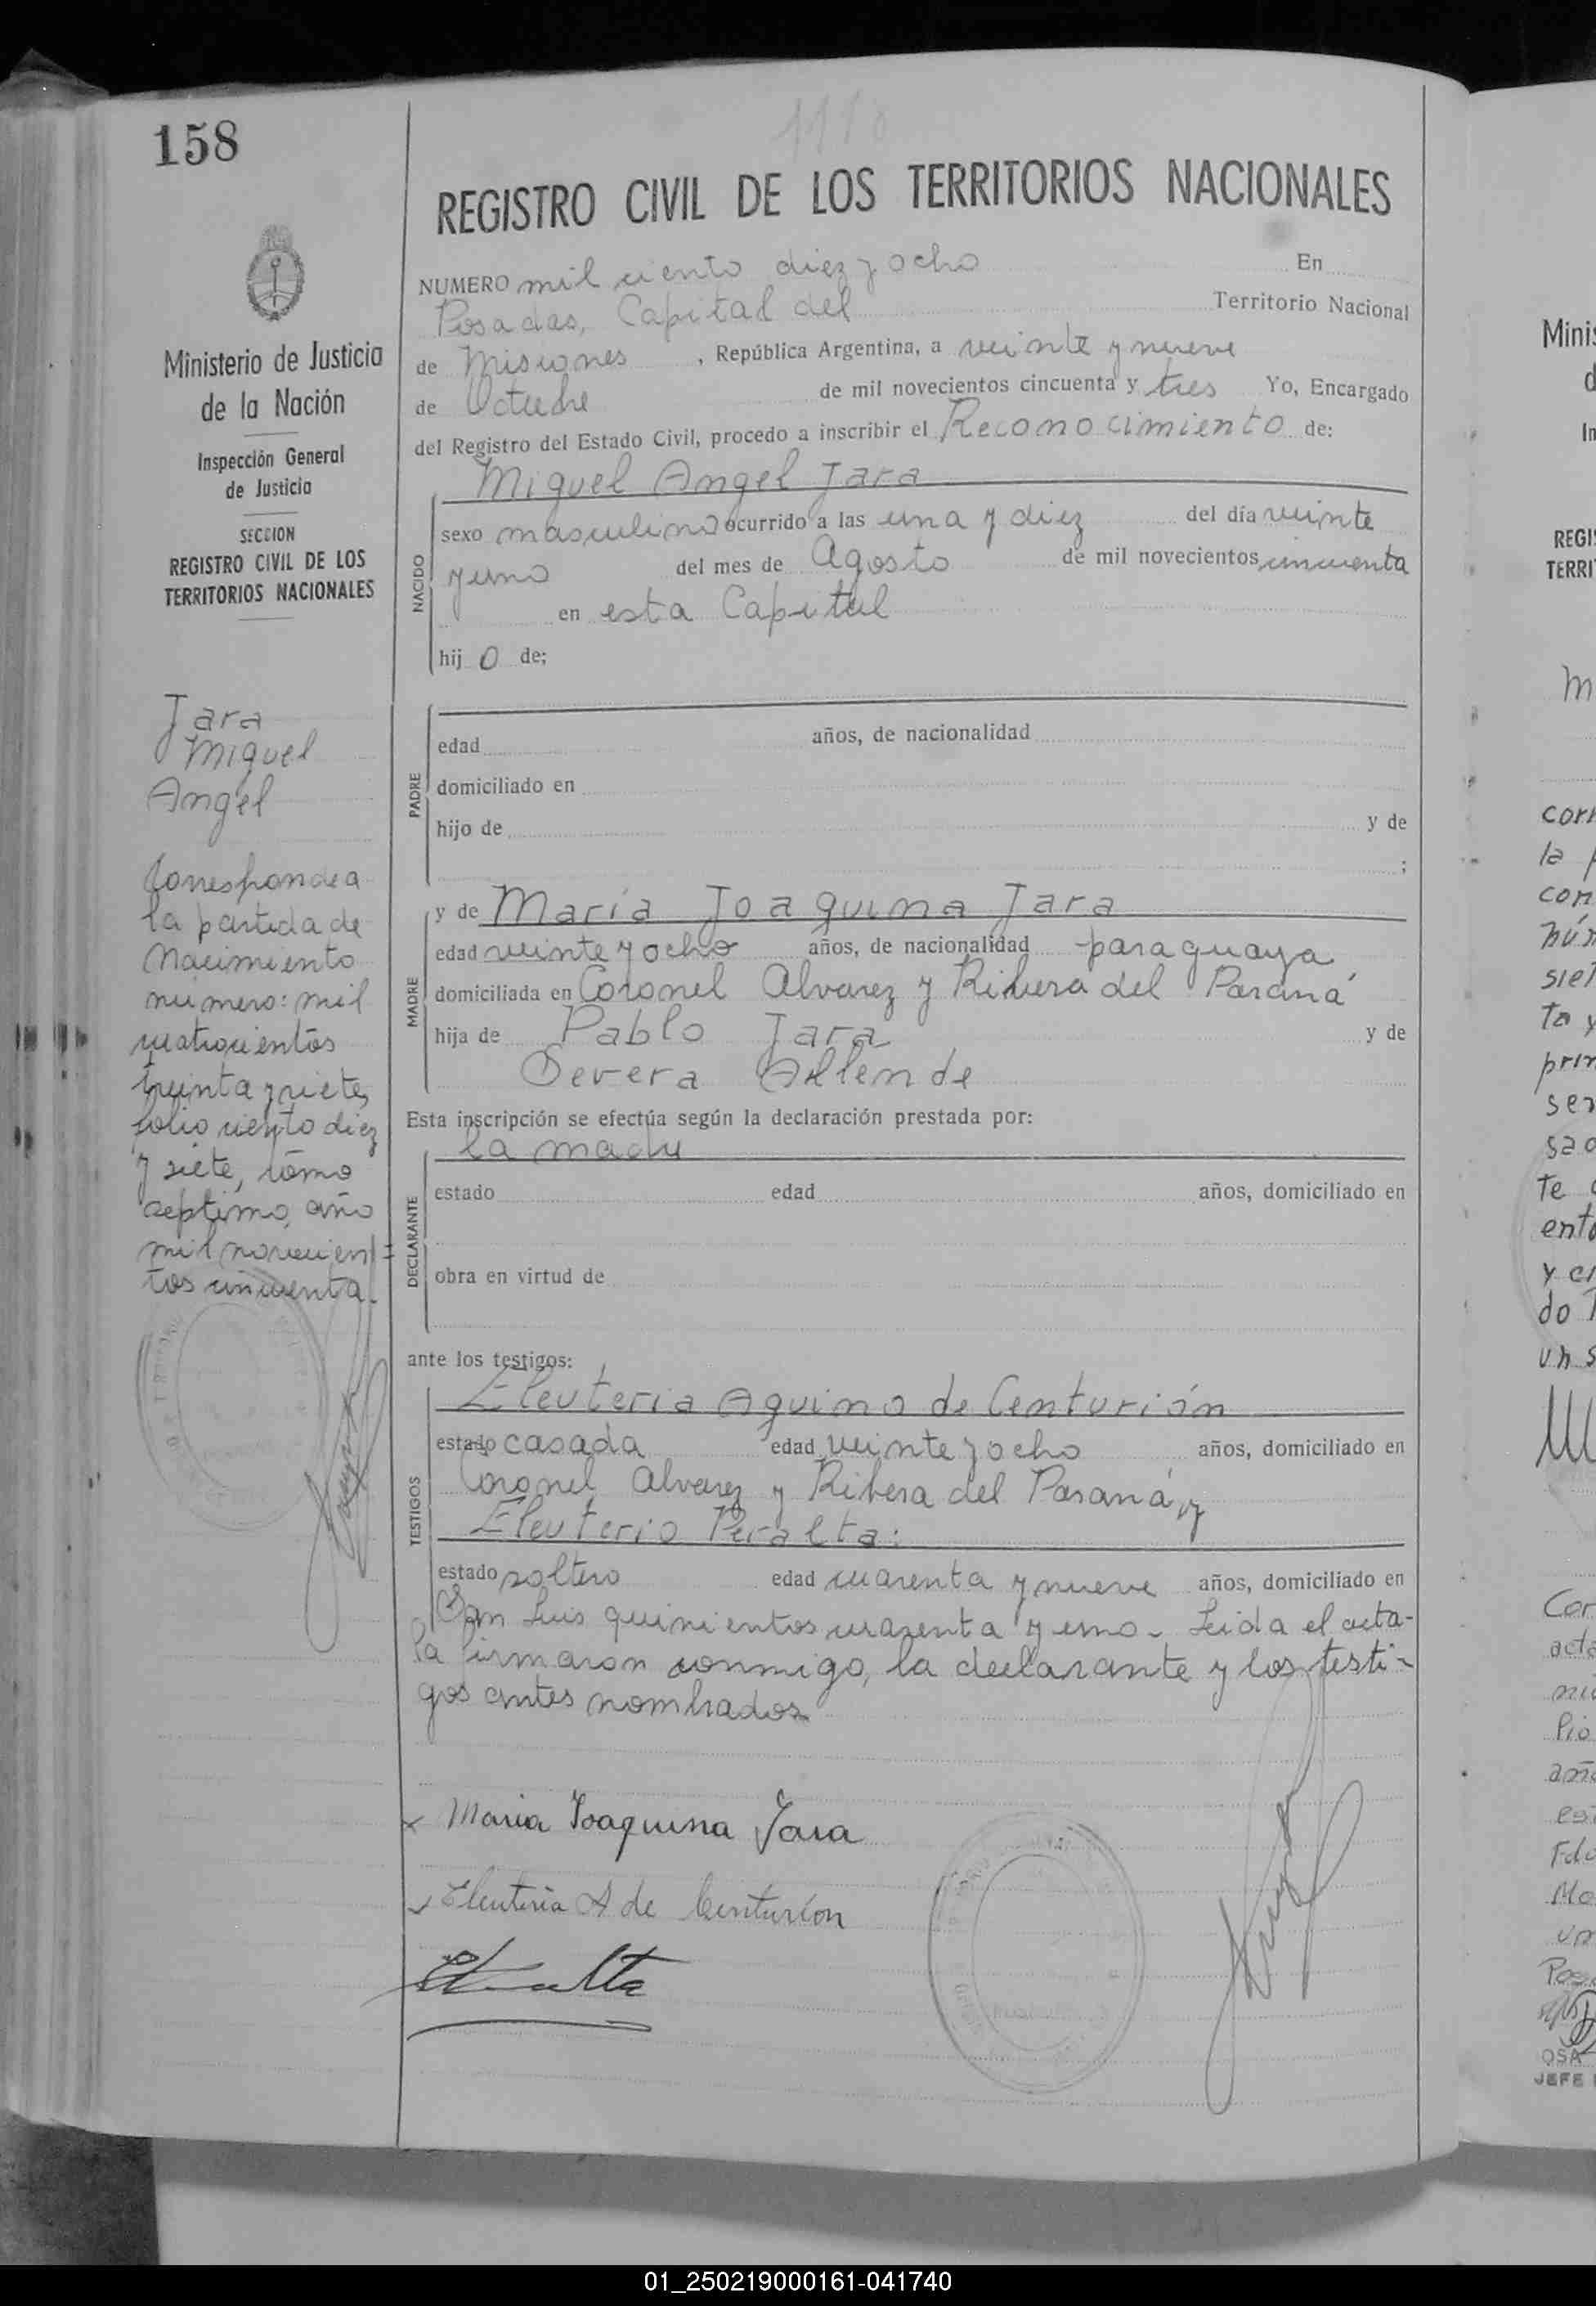 158
1118
REGISTRO CIVIL DE LOS TERRITORIOS NACIONALES
NUMERO mil ciento diez y ocho En
Posadas, Capital del Territorio Nacional
de Misiones , República Argentina, a veinte y nueve
de Octubre de mil novecientos cincuenta y tres Yo, Encargado
del Registro del Estado Civil, procedo a inscribir el Reconocimiento de:
Miguel Angel Jara
NACIDO
sexo masculino ocurrido a las una y diez del día veinte
y uno del mes de Agosto de mil novecientos cincuenta
en esta Capital
hij o de;
PADRE
edad años, de nacionalidad
domiciliado en
hijo de y de
;
MADRE
y de María Joaquina Jara
edad veinte y ocho años, de nacionalidad paraguaya
domiciliada en Coronel Alvarez y Ribera del Paraná
hija de Pablo Jara y de
Severa Allende
Esta inscripción se efectúa según la declaración prestada por:
la madre
DECLARANTE
estado edad años, domiciliado en
obra en virtud de
ante los testigos:
TESTIGOS
Eleuteria Aquino de Centurión
estado casada edad veinte y ocho años, domiciliado en
Coronel Alvarez y Ribera del Paraná, y
Eleuterio Peralta:
estado soltero edad cuarenta y nueve años, domiciliado en
San Luis quinientos cuarenta y uno - Leida el acta-
la firmaron conmigo, la declarante y los testi-
gos antes nombrados
x Maria Joaquina Jara
Eleuteria A de Centurión
Ministerio de Justicia
de la Nación
Inspección General
de Justicia
SECCION
REGISTRO CIVIL DE LOS
TERRITORIOS NACIONALES
Jara
Miguel
Angel
Corresponde a
la partida de
Nacimiento
número: mil
cuatrocientos
treinta y siete,
folio ciento diez
y siete, tomo
septimo, año
mil novecien=
tos cincuenta.
Minis
d
In
REGI
TERRI
M
corr
la p
con
núm
siet
to y
prim
ser
sad
te
ento
y ci
do
un s
Cor
acta
nú
lio
año
Fdo
Mo
un
Pos
OSA
JEFE
01_250219000161-041740